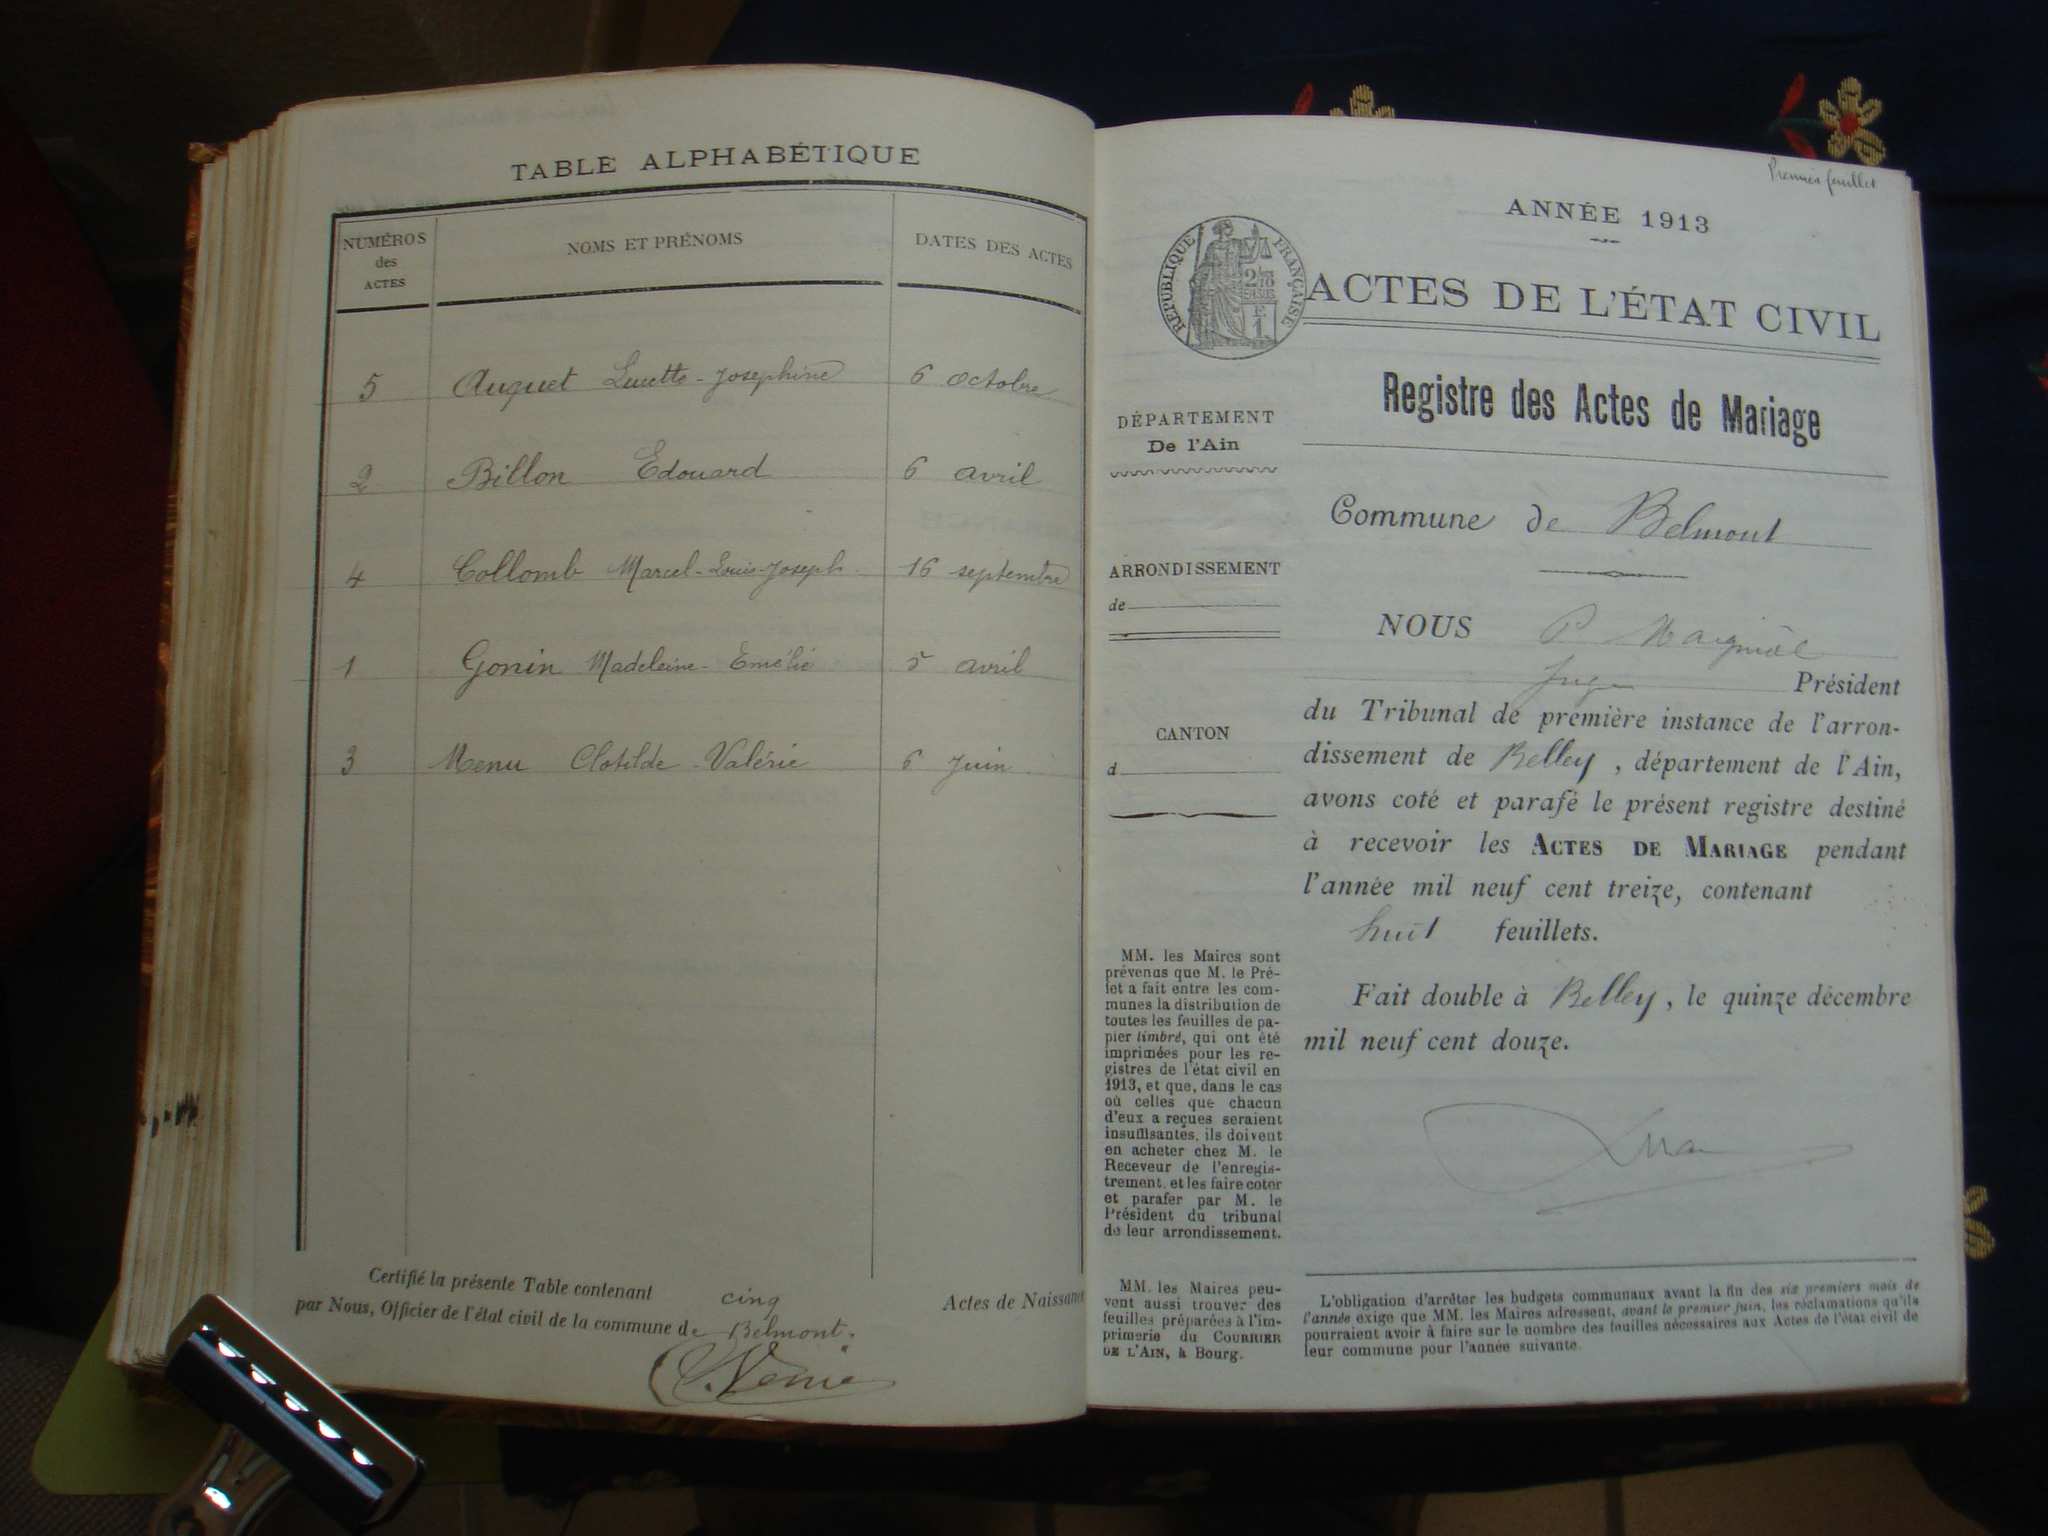 TABLE ALPHABÉTIQUE
NUMÉROS des ACTES NOMS ET PRÉNOMS DATES DES ACTES
5 Auguet Lucette-Joséphine 6 octobre
2 Billon Edouard 6 avril
4 Collomb Marcel-Louis-Joseph 16 septembre
1 Gonin Madeleine-Emélie 5 avril
3 Menu Clotilde-Valérie 6 Juin
Certifié la présente Table contenant cinq Actes de Naissance
par Nous, Officier de l'état civil de la commune de Belmont.
Premier feuillet
ANNÉE 1913
RÉPUBLIQUE FRANÇAISE
ACTES DE L'ÉTAT CIVIL
Registre des Actes de Mariage
DÉPARTEMENT
De l'Ain
Commune de Belmont
ARRONDISSEMENT
de
CANTON
d
NOUS P
Juge Président
du Tribunal de première instance de l'arron-
dissement de Belley, département de l'Ain,
avons coté et parafé le présent registre destiné
à recevoir les ACTES DE MARIAGE pendant
l'année mil neuf cent treize, contenant
huit feuillets.
Fait double à Belley, le quinze décembre
mil neuf cent douze.
MM. les Maires sont
prévenus que M. le Pré-
fet a fait entre les com-
munes la distribution de
toutes les feuilles de pa-
pier timbré, qui ont été
imprimées pour les re-
gistres de l'état civil en
1913, et que, dans le cas
où celles que chacun
d'eux a reçues seraient
insuffisantes, ils doivent
en acheter chez M. le
Receveur de l'enregis-
trement, et les faire coter
et parafer par M. le
Président du tribunal
de leur arrondissement.
MM. les Maires peu-
vent aussi trouver des
feuilles préparées à l'im-
primerie du COURRIER
DE L'AIN, à Bourg.
L'obligation d'arrêter les budgets communaux avant la fin des six premiers mois de
l'année exige que MM. les Maires adressent, avant le premier juin, les réclamations qu'ils
pourraient avoir à faire sur le nombre des feuilles nécessaires aux Actes de l'état civil de
leur commune pour l'année suivante.